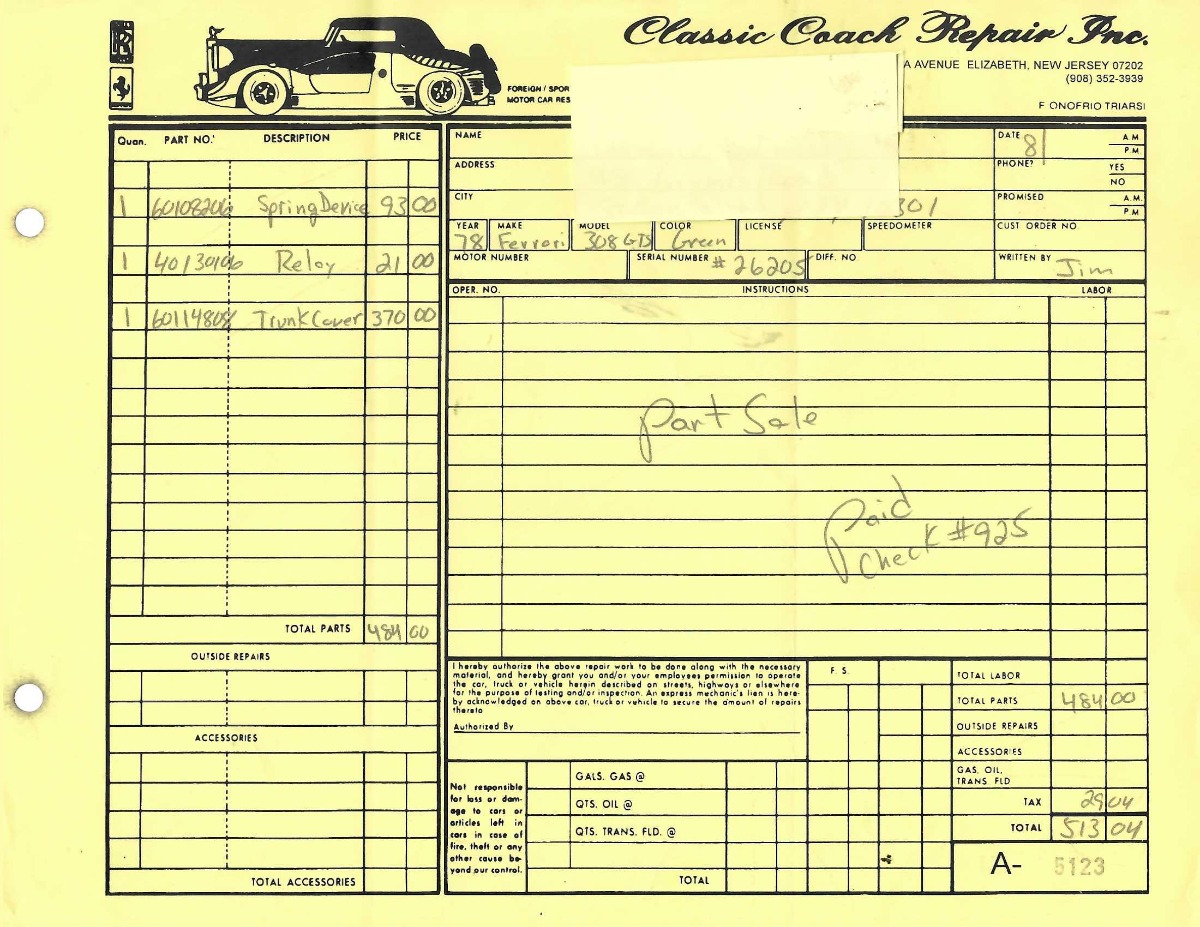 Classic Coach Repair Inc.
A AVENUE ELIZABETH, NEW JERSEY 07202
(908) 352-3939
FOREIGN / SPOR
MOTOR CAR RES
F ONOFRIO TRIARSI
Quan. PART NO. DESCRIPTION PRICE
1 60108206 Spring Device 93 00
1 40130106 Relay 21 00
1 60114808 Trunk Cover 370 00
TOTAL PARTS 484 00
OUTSIDE REPAIRS
ACCESSORIES
TOTAL ACCESSORIES
NAME
DATE 8/ A.M
P.M
ADDRESS
PHONE? YES
NO
CITY 301
PROMISED A.M.
P M
YEAR 78 MAKE Ferrari MODEL 308 GTS COLOR Green LICENSE SPEEDOMETER CUST ORDER NO.
MOTOR NUMBER SERIAL NUMBER # 26205 DIFF. NO WRITTEN BY Jim
OPER. NO. INSTRUCTIONS LABOR
Part Sale
Paid
Check #925
I hereby authorize the above repair work to be done along with the necessary
material, and hereby grant you and/or your employees permission to operate
the car, truck or vehicle herein described on streets, highways or elsewhere
for the purpose of testing and/or inspection. An express mechanic's lien is here-
by acknowledged on above car, truck or vehicle to secure the amount of repairs
thereto
Authorized By
F. S.
Not responsible
for loss or dam-
age to cars or
articles left in
cars in case of
fire, theft or any
other cause be-
yond our control.
GALS. GAS @
QTS. OIL @
QTS. TRANS. FLD. @
TOTAL
TOTAL LABOR
TOTAL PARTS 484 00
OUTSIDE REPAIRS
ACCESSORIES
GAS, OIL,
TRANS. FLD
TAX 29 04
TOTAL 513 04
A- 5123